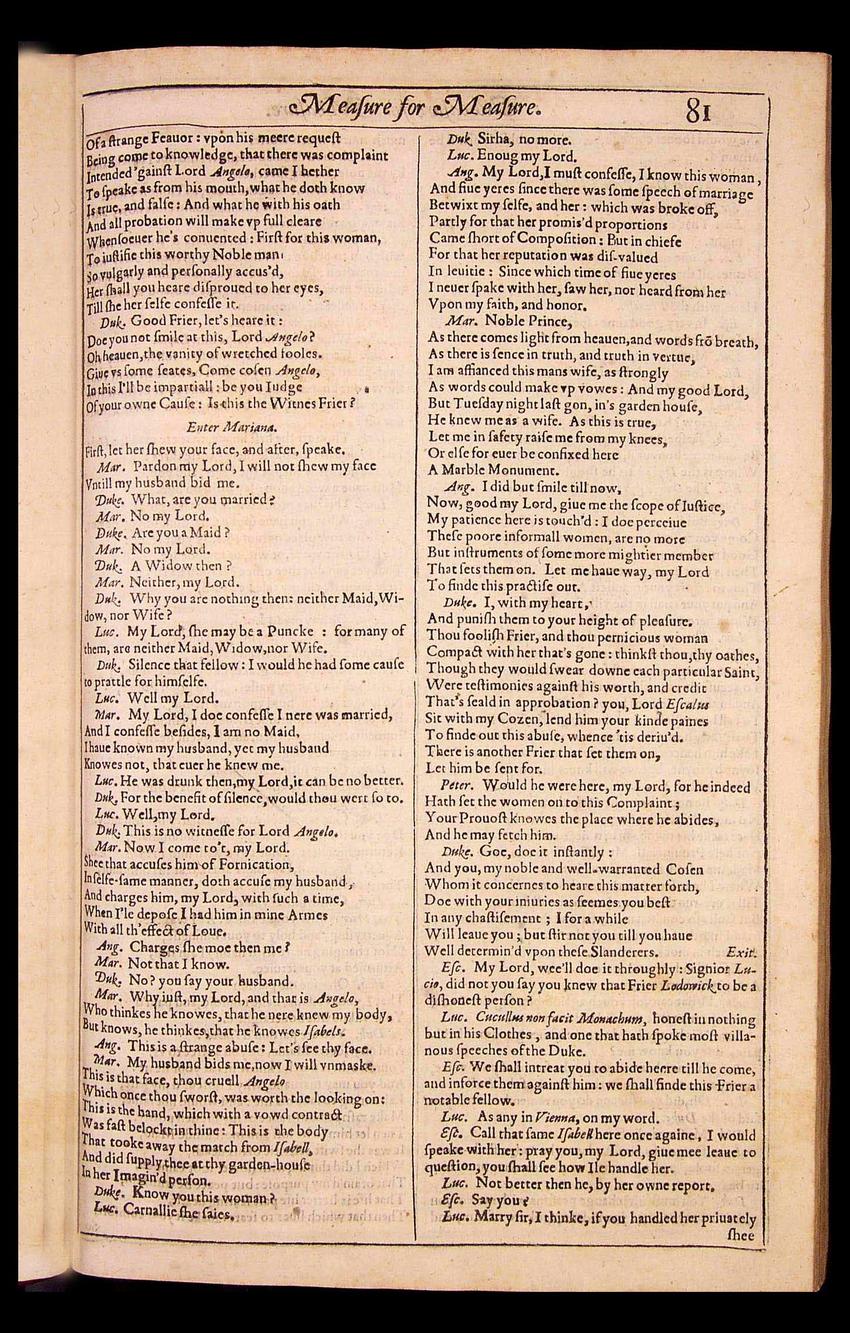 Meaſure for Meaſure.
81
Of a ſtrange Feauor : vpon his meere requeſt
Being come to knowledge, that there was complaint
Intended 'gainſt Lord Angelo, came I hether
To ſpeake as from his mouth, what he doth know
Is true, and falſe : And what he with his oath
And all probation will make vp full cleare
Whenſoeuer he's conuented : Firſt for this woman,
To iuſtifie this worthy Noble man
So vulgarly and perſonally accus'd,
Her ſhall you heare diſproued to her eyes,
Till ſhe her ſelfe confeſſe it.
Duk. Good Frier, let's heare it :
Doe you not ſmile at this, Lord Angelo?
Oh heauen, the vanity of wretched fooles.
Giue vs ſome ſeates, Come coſen Angelo,
In this I'll be impartiall : be you Iudge
Of your owne Cauſe : Is this the Witnes Frier ?
Enter Mariana.
Firſt, let her ſhew your face, and after, ſpeake.
Mar. Pardon my Lord, I will not ſhew my face
Vntill my husband bid me.
Duke. What, are you married?
Mar. No my Lord.
Duke. Are you a Maid ?
Mar. No my Lord.
Duk. A Widow then ?
Mar. Neither, my Lord.
Duk. Why you are nothing then: neither Maid, Wi-
dow, nor Wife ?
Luc. My Lord, ſhe may be a Puncke : for many of
them, are neither Maid, Widow, nor Wife.
Duk. Silence that fellow : I would he had ſome cauſe
to prattle for himſelfe.
Luc. Well my Lord.
Mar. My Lord, I doe confeſſe I nere was married,
And I confeſſe beſides, I am no Maid,
I haue known my husband, yet my husband
Knowes not, that euer he knew me.
Luc. He was drunk then, my Lord, it can be no better.
Duk. For the benefit of ſilence, would thou wert ſo to.
Luc. Well, my Lord.
Duk. This is no witneſſe for Lord Angelo.
Mar. Now I come to't, my Lord.
Shee that accuſes him of Fornication,
In ſelfe-ſame manner, doth accuſe my husband,
And charges him, my Lord, with ſuch a time,
When I'le depoſe I had him in mine Armes
With all th'effect of Loue.
Ang. Charges ſhe moe then me ?
Mar. Not that I know.
Duk. No? you ſay your husband.
Mar. Why iuſt, my Lord, and that is Angelo,
Who thinkes he knowes, that he nere knew my body,
But knows, he thinkes, that he knowes Iſabels.
Ang. This is a ſtrange abuſe : Let's ſee thy face.
Mar. My husband bids me, now I will vnmaske.
This is that face, thou cruell Angelo
Which once thou ſworſt, was worth the looking on:
This is the hand, which with a vowd contract
Was faſt belockt in thine : This is the body
That tooke away the match from Iſabell,
And did ſupply thee at thy garden-houſe
In her Imagin'd perſon.
Duke. Know you this woman ?
Luc. Carnallie ſhe ſaies.
Duk. Sirha, no more.
Luc. Enoug my Lord.
Ang. My Lord, I muſt confeſſe, I know this woman,
And fiue yeres ſince there was ſome ſpeech of marriage
Betwixt my ſelfe, and her : which was broke off,
Partly for that her promis'd proportions
Came ſhort of Compoſition : But in chiefe
For that her reputation was diſ-valued
In leuitie : Since which time of fiue yeres
I neuer ſpake with her, ſaw her, nor heard from her
Vpon my faith, and honor.
Mar. Noble Prince,
As there comes light from heauen, and words frō breath,
As there is ſence in truth, and truth in vertue,
I am affianced this mans wife, as ſtrongly
As words could make vp vowes : And my good Lord,
But Tueſday night laſt gon, in's garden houſe,
He knew me as a wife. As this is true,
Let me in ſafety raiſe me from my knees,
Or elſe for euer be confixed here
A Marble Monument.
Ang. I did but ſmile till now,
Now, good my Lord, giue me the ſcope of Iuſtice,
My patience here is touch'd : I doe perceiue
Theſe poore informall women, are no more
But inſtruments of ſome more mightier member
That ſets them on. Let me haue way, my Lord
To finde this practiſe out.
Duke. I, with my heart,
And puniſh them to your height of pleaſure.
Thou fooliſh Frier, and thou pernicious woman
Compact with her that's gone : thinkſt thou, thy oathes,
Though they would ſwear downe each particular Saint,
Were teſtimonies againſt his worth, and credit
That's ſeald in approbation ? you, Lord Eſcalus
Sit with my Cozen, lend him your kinde paines
To finde out this abuſe, whence 'tis deriu'd.
There is another Frier that ſet them on,
Let him be ſent for.
Peter. Would he were here, my Lord, for he indeed
Hath ſet the women on to this Complaint ;
Your Prouoſt knowes the place where he abides,
And he may fetch him.
Duke. Goe, doe it inſtantly :
And you, my noble and well-warranted Coſen
Whom it concernes to heare this matter forth,
Doe with your iniuries as ſeemes you beſt
In any chaſtiſement ; I for a while
Will leaue you ; but ſtir not you till you haue
Well determin'd vpon theſe Slanderers. Exit.
Eſc. My Lord, wee'll doe it throughly : Signior Lu-
cio, did not you ſay you knew that Frier Lodowick to be a
diſhoneſt perſon ?
Luc. Cucullus non facit Monachum, honeſt in nothing
but in his Clothes, and one that hath ſpoke moſt villa-
nous ſpeeches of the Duke.
Eſc. We ſhall intreat you to abide heere till he come,
and inforce them againſt him : we ſhall finde this Frier a
notable fellow.
Luc. As any in Vienna, on my word.
Eſc. Call that ſame Iſabell here once againe, I would
ſpeake with her : pray you, my Lord, giue mee leaue to
queſtion, you ſhall ſee how Ile handle her.
Luc. Not better then he, by her owne report.
Eſc. Say you ?
Luc. Marry ſir, I thinke, if you handled her priuately
ſhee